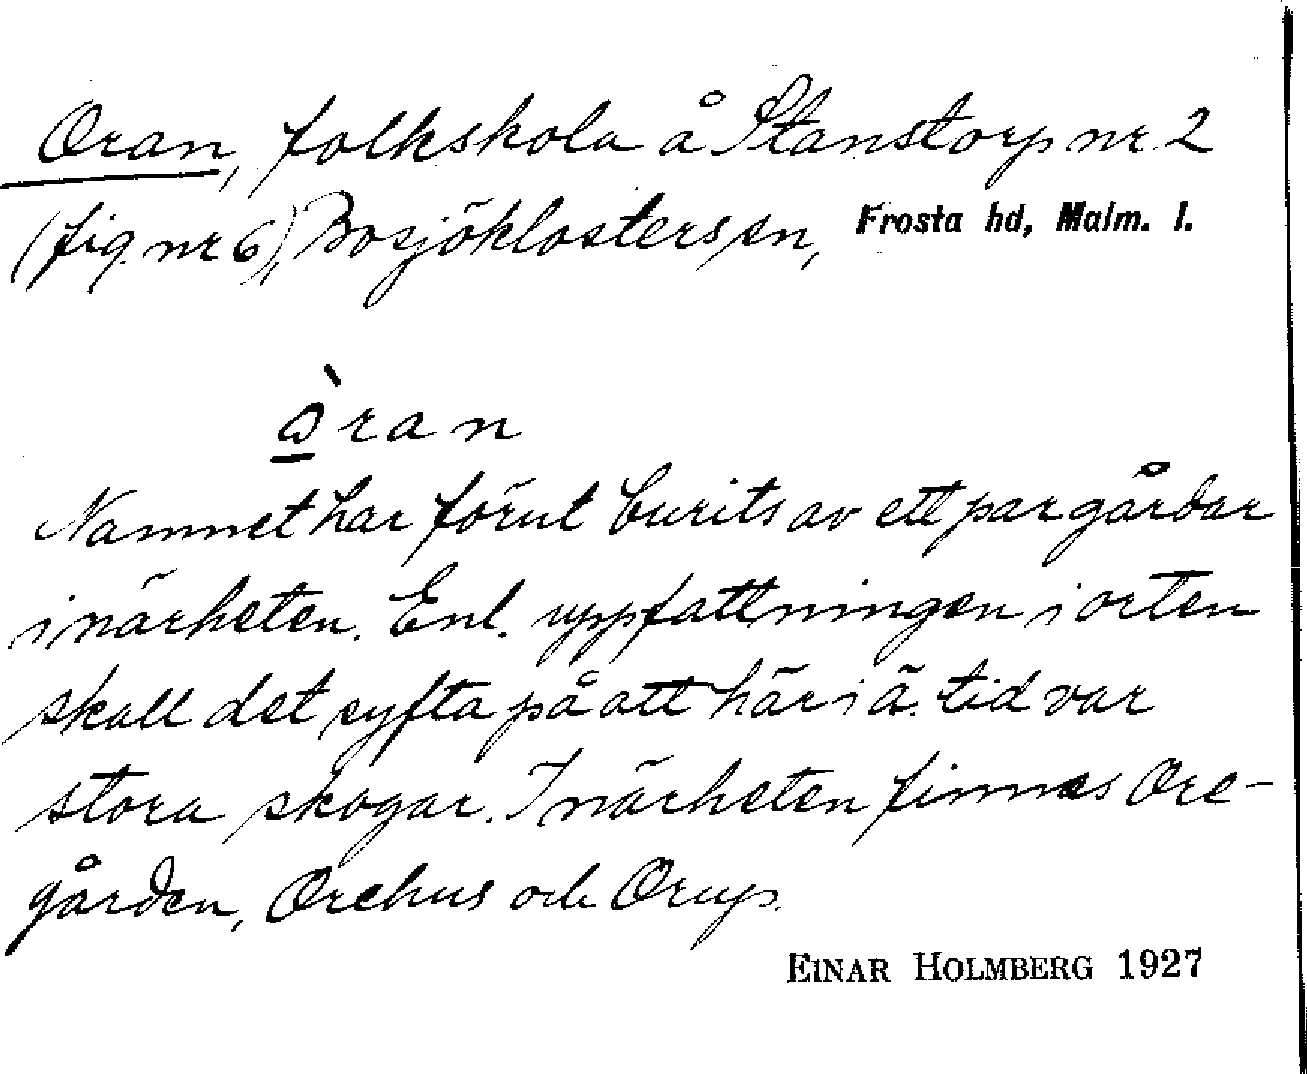 Oran, folkskola å Stanstorp nr 2
(fig. nr 6), Bosjöklosters sn, Frosta hd, Malm. l.
òran
Namnet har förut burits av ett par gårdar
i närheten. Enl. uppfattningen i orten
skall det syfta på att här i ä. tid var
stora skogar. I närheten finnes Ore-
gården, Orehus och Orup.
EINAR HOLMBERG 1927